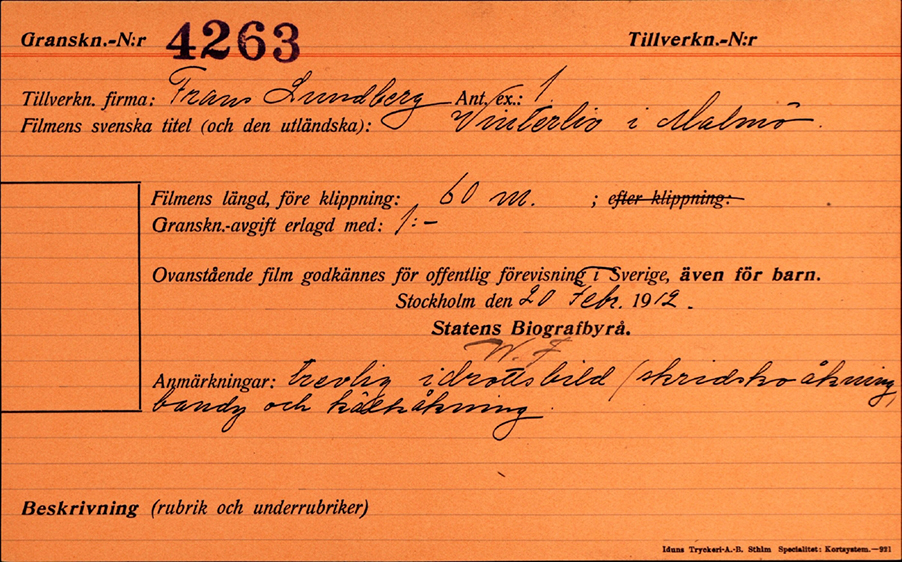 Granskn.-N:r 4263 Tillverkn.-N:r
Tillverkn. firma: Frans Lundberg Ant. ex.: 1
Filmens svenska titel (och den utländska): Vinterliv i Malmö.
Filmens längd, före klippning: 60 m. ; efter klippning:
Granskn.-avgift erlagd med: 1:-
Ovanstående film godkännes för offentlig förevisning i Sverige, även för barn.
Stockholm den 20 Febr. 1912.
Statens Biografbyrå.
W. F
Anmärkningar: trevlig idrottsbild (skridskoåkning,
bandy och kälkåkning.
Beskrivning (rubrik och underrubriker)
Iduns Tryckeri-A.-B. Sthlm Specialitet: Kortsystem.—921